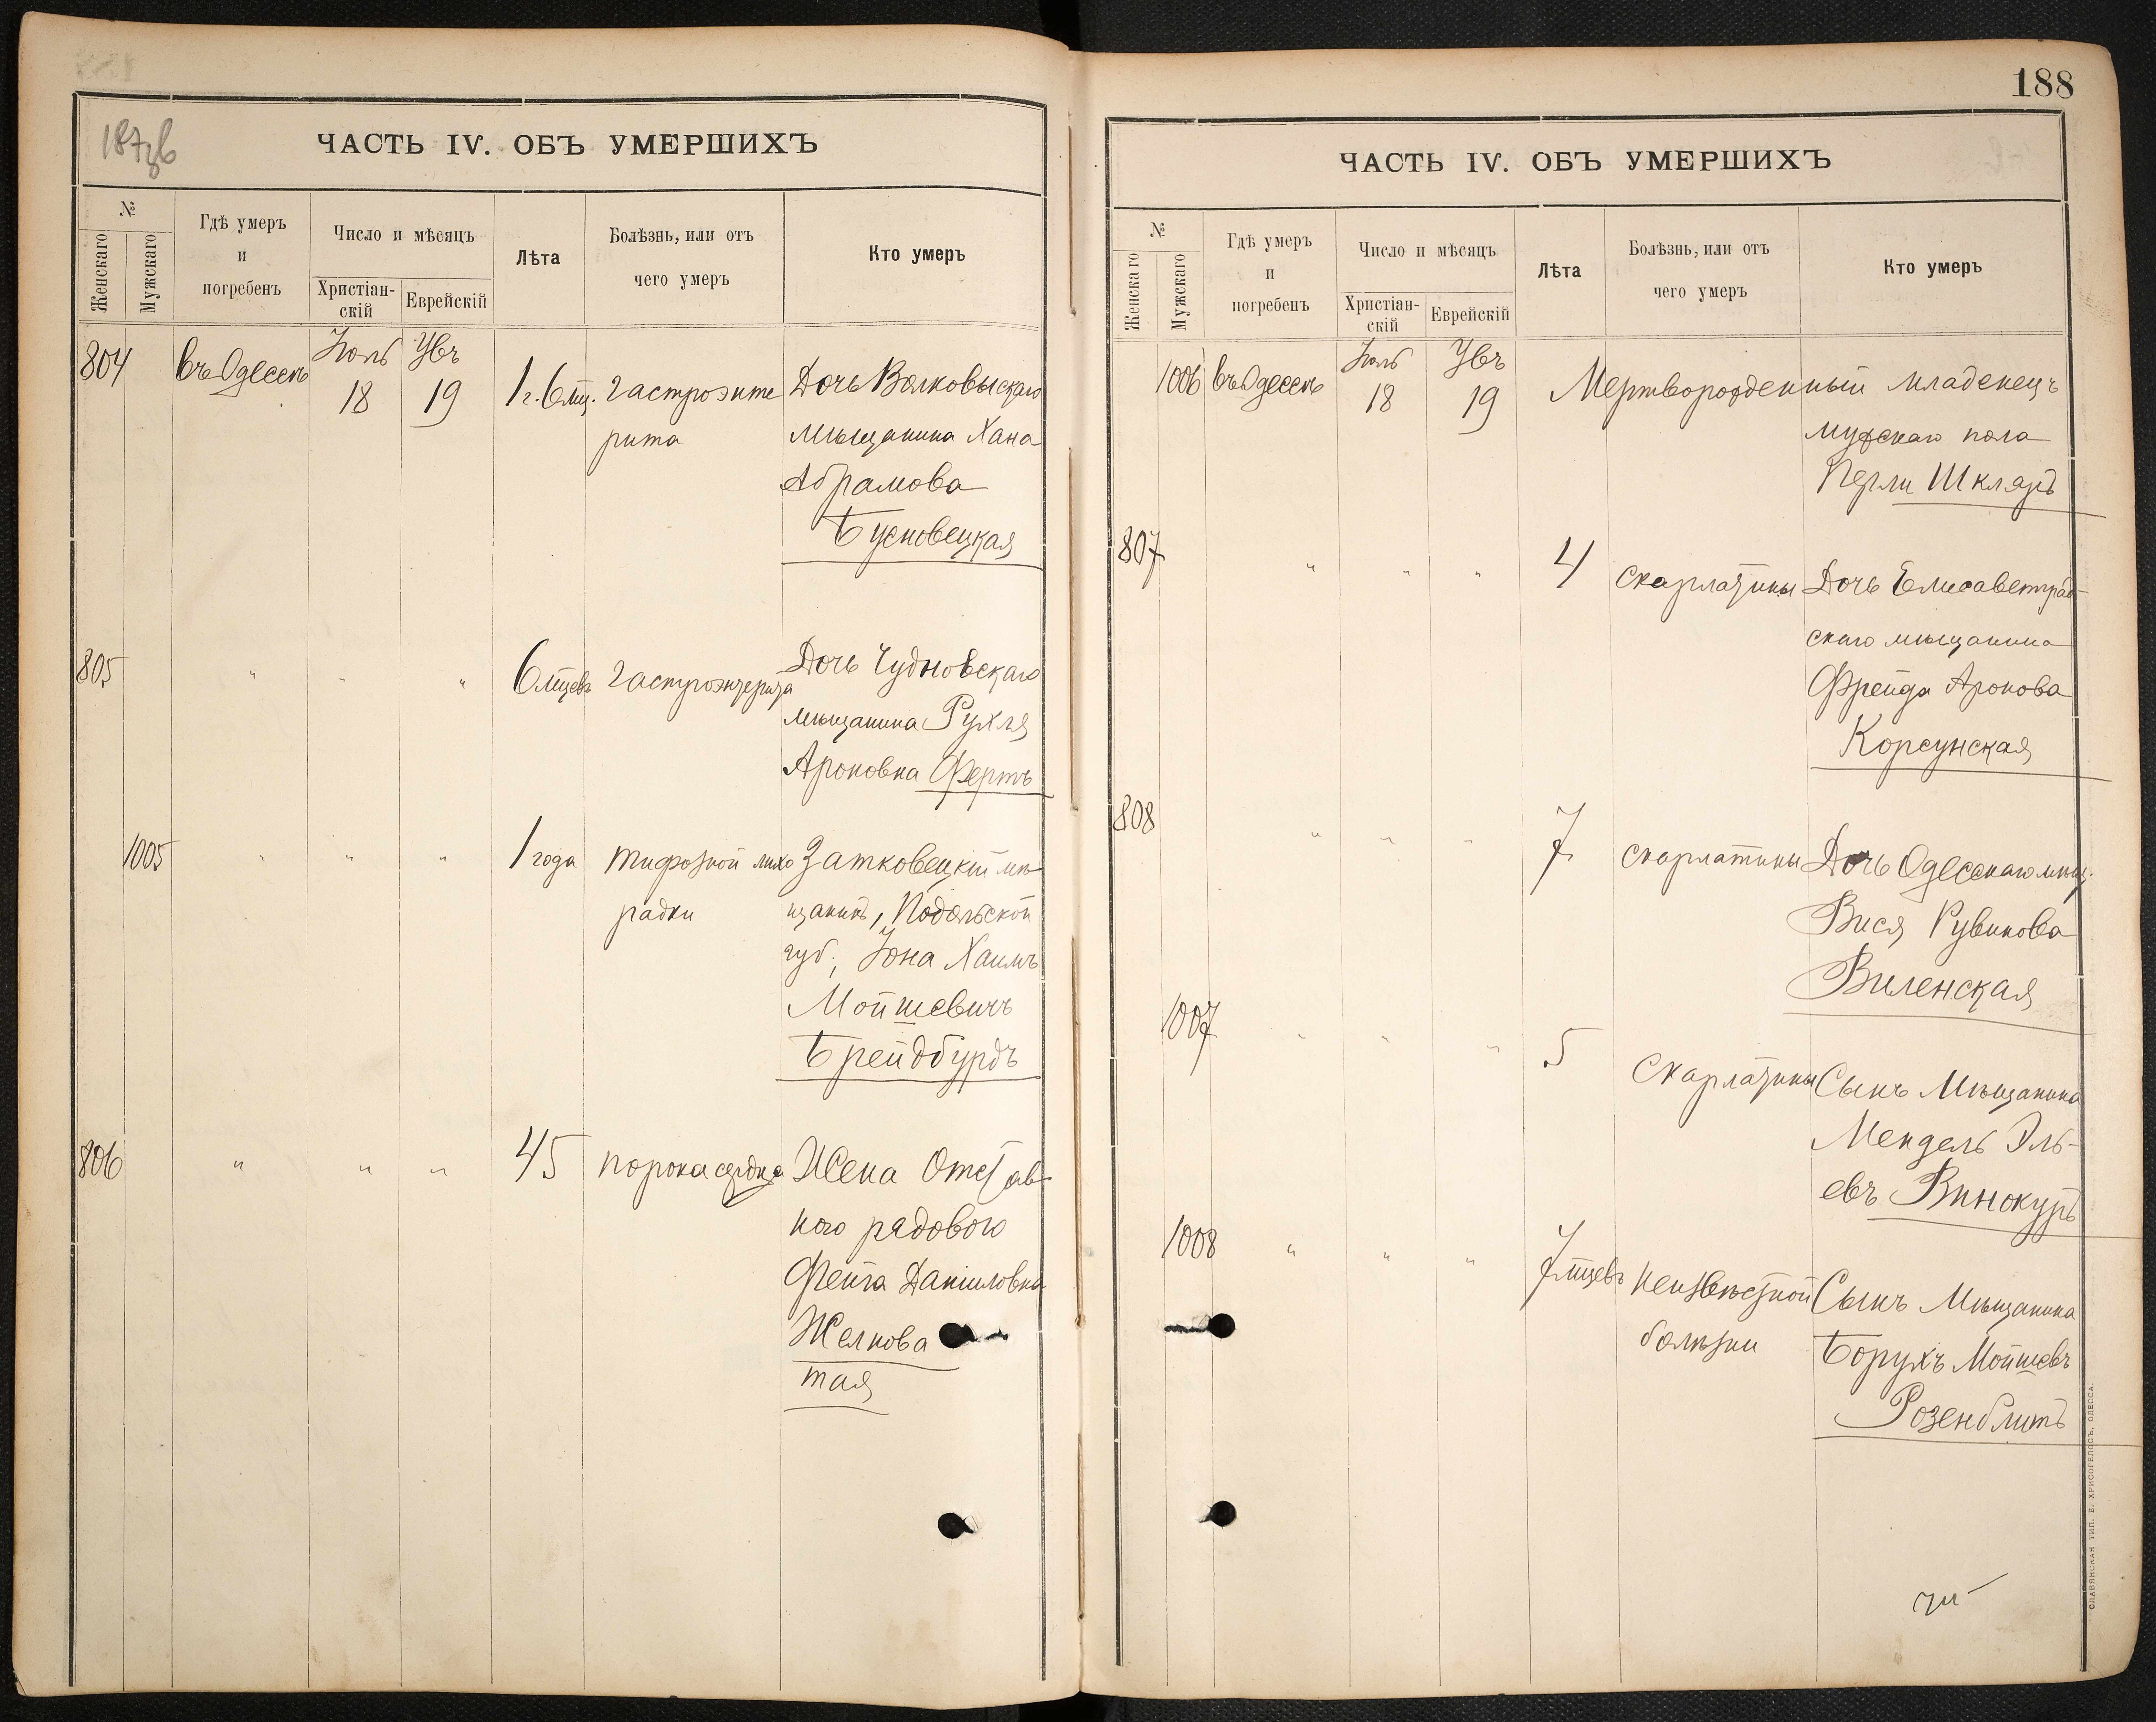 187зв
ЧАСТЬ IV. ОБЪ УМЕРШИХЪ
№
Женскаго
Мужскаго
Гдѣ умеръ
и
погребенъ
Число и мѣсяцъ
Христіан-
скій
Еврейскій
Лѣта
Болѣзнь, или отъ
чего умеръ
Кто умеръ
804 въ Одессѣ Іюль 18 Увъ 19 1 г. 6 мц. гастроэнте Дочь Волковыскаго
рита мѣщанина Хана
Абрамова
Бусновецкая
805 " " " 6 мцевъ гастроэнтерита Дочь Чудновскаго
мѣщанина Рухля
Ароновна Фертъ
1005 " " " 1 года тифозной лихо Затковецкій мѣ
радки щанинъ, Подольской
губ., Іона Хаимъ
Мойшевичъ
Брейдбурдъ
806 " " " 45 порока сердца Жена Отстав-
ного рядового
Фейга Даніиловна
Желкова
тая
188
ЧАСТЬ IV. ОБЪ УМЕРШИХЪ
№
Женскаго
Мужскаго
Гдѣ умеръ
и
погребенъ
Число и мѣсяцъ
Христіан-
скій
Еврейскій
Лѣта
Болѣзнь, или отъ
чего умеръ
Кто умеръ
1006 въ Одессѣ Іюль 18 Увъ 19 Мертворожденный младенецъ
мужскаго пола
Перли Шкляръ
807 " " " 4 скарлатины Дочь Елисаветград-
скаго мѣщанина
Фрейда Аронова
Корсунская
808 " " " 7 скарлатины Дочь Одесскаго мѣщ.
Вися Рувинова
Виленская
1007 " " " 5 скарлатины Сынъ Мѣщанина
Мендель Эль-
евъ Винокуръ
1008 " " " 7 мцевъ неизвѣстной Сынъ Мѣщанина
болѣзни Борухъ Мойшевъ
Розенблитъ
СЛАВЯНСКАЯ ТИП. Е. ХРИСОГЕЛОСЪ, ОДЕССА.